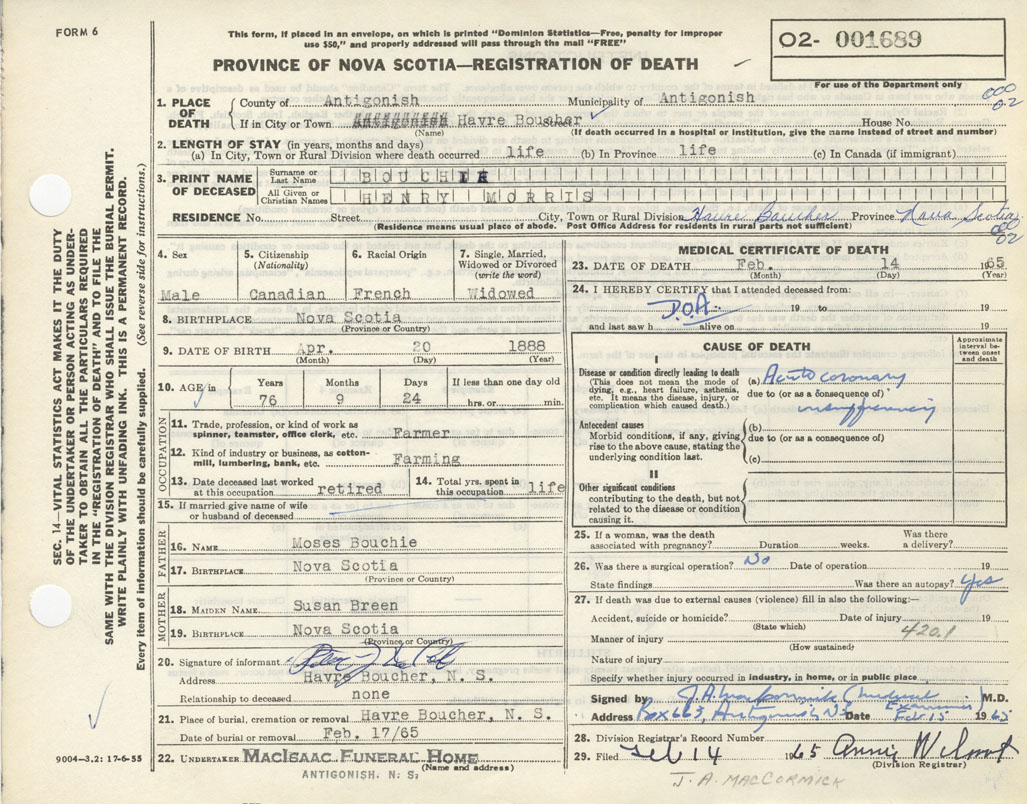 FORM 6
This form, if placed in an envelope, on which is printed "Dominion Statistics—Free, penalty for improper
use $50," and properly addressed will pass through the mail "FREE"
PROVINCE OF NOVA SCOTIA—REGISTRATION OF DEATH
02- 001689
For use of the Department only
000
02
1. PLACE OF DEATH
County of Antigonish Municipality of Antigonish
If in City or Town Havre Bouchar Street House No.
(Name) (If death occurred in a hospital or institution, give the name instead of street and number)
2. LENGTH OF STAY (in years, months and days)
(a) In City, Town or Rural Division where death occurred life (b) In Province life (c) In Canada (if immigrant)
3. PRINT NAME OF DECEASED
Surname or Last Name BOUCHIE
All Given or Christian Names HENRY MORRIS
RESIDENCE No. Street City, Town or Rural Division Havre Boucher Province Nova Scotia
(Residence means usual place of abode. Post Office Address for residents in rural parts not sufficient)
000
02
4. Sex
Male
5. Citizenship
(Nationality)
Canadian
6. Racial Origin
French
7. Single, Married,
Widowed or Divorced
(write the word)
Widowed
8. BIRTHPLACE Nova Scotia
(Province or Country)
9. DATE OF BIRTH Apr. 20 1888
(Month) (Day) (Year)
10. AGE in
Years Months Days If less than one day old
76 9 24 hrs. or min.
OCCUPATION
11. Trade, profession, or kind of work as
spinner, teamster, office clerk, etc. Farmer
12. Kind of industry or business, as cotton-
mill, lumbering, bank, etc. Farming
13. Date deceased last worked
at this occupation retired
14. Total yrs. spent in
this occupation life
15. If married give name of wife
or husband of deceased
FATHER
16. NAME Moses Bouchie
17. BIRTHPLACE Nova Scotia
(Province or Country)
MOTHER
18. MAIDEN NAME Susan Breen
19. BIRTHPLACE Nova Scotia
(Province or Country)
20. Signature of informant
Address Havre Boucher, N. S.
Relationship to deceased none
21. Place of burial, cremation or removal Havre Boucher, N. S.
Date of burial or removal Feb. 17/65
22. UNDERTAKER MACISAAC FUNERAL HOME
(Name and address)
ANTIGONISH, N. S.
MEDICAL CERTIFICATE OF DEATH
23. DATE OF DEATH Feb. 14 1965
(Month) (Day) (Year)
24. I HEREBY CERTIFY that I attended deceased from:
D.O.A. 19 to 19
and last saw h alive on 19
CAUSE OF DEATH
Approximate
interval be-
tween onset
and death
I
Disease or condition directly leading to death
(This does not mean the mode of
dying, e.g., heart failure, asthenia,
etc. It means the disease, injury, or
complication which caused death.)
(a) Acute coronary
due to (or as a consequence of)
insufficiency
Antecedent causes
Morbid conditions, if any, giving
rise to the above cause, stating the
underlying condition last.
(b)
due to (or as a consequence of)
(c)
II
Other significant conditions
contributing to the death, but not
related to the disease or condition
causing it.
25. If a woman, was the death
associated with pregnancy? Duration weeks. Was there
a delivery?
26. Was there a surgical operation? No Date of operation 19
State findings Was there an autopsy? Yes
27. If death was due to external causes (violence) fill in also the following:—
Accident, suicide or homicide? Date of injury 19
(State which)
420.1
Manner of injury
(How sustained)
Nature of injury
Specify whether injury occurred in industry, in home, or in public place
Signed by J. A. MacCormick (Medical Examiner) M.D.
Address Box 663, Antigonish, N.S. Date Feb 15 1965
28. Division Registrar's Record Number
29. Filed Feb 14 1965
(Division Registrar)
J. A. MACCORMICK
SEC. 14—VITAL STATISTICS ACT MAKES IT THE DUTY
OF THE UNDERTAKER OR PERSON ACTING AS UNDER-
TAKER TO OBTAIN ALL THE PARTICULARS REQUIRED
IN THE "REGISTRATION OF DEATH" AND TO FILE THE
SAME WITH THE DIVISION REGISTRAR WHO SHALL ISSUE THE BURIAL PERMIT.
WRITE PLAINLY WITH UNFADING INK. THIS IS A PERMANENT RECORD.
Every item of information should be carefully supplied. (See reverse side for instructions.)
9004—3.2: 17-6-55